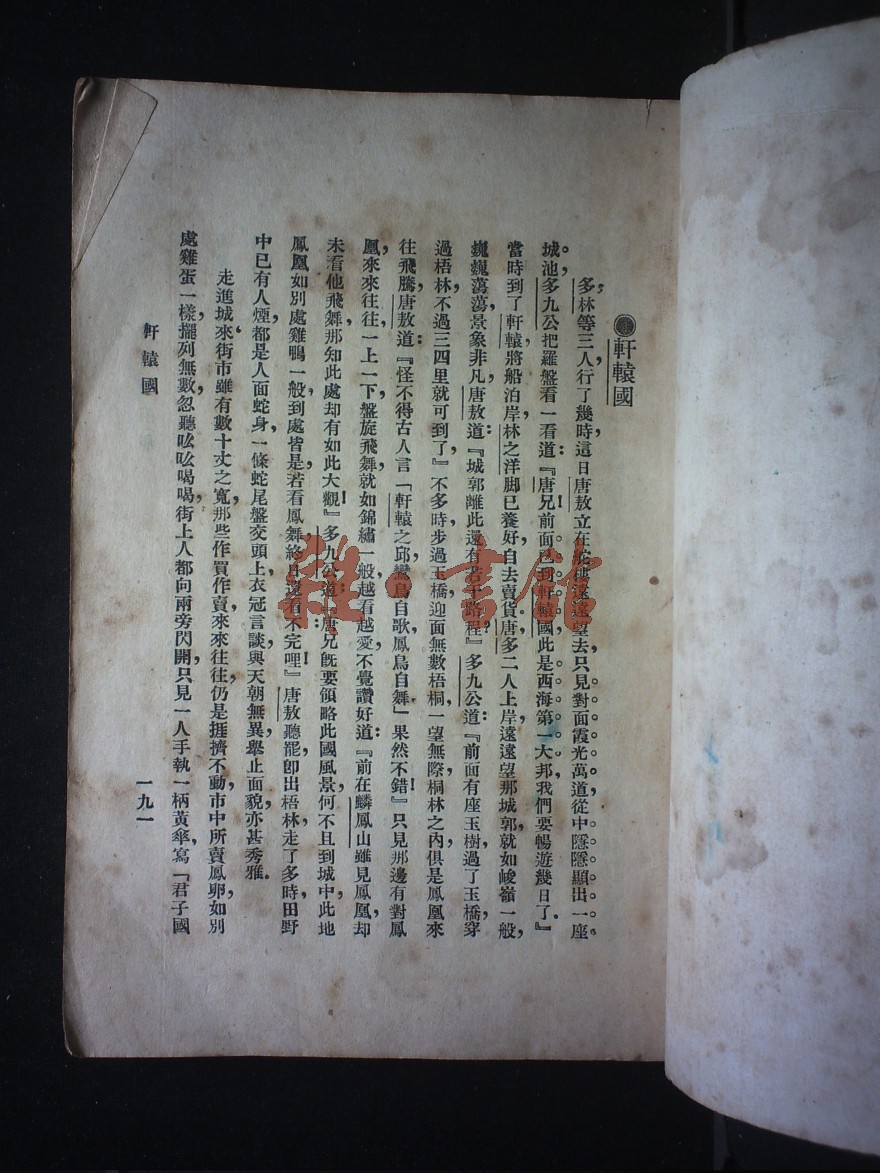 軒轅國
多林等三人行了幾時，這日唐敖立在柁樓遠遠望去，只見對面霞光萬道，從中隱隱顯出一座
城池，多九公把羅盤看一看道：『唐兄！前面已到軒轅國，此是西海第一大邦，我們要暢遊幾日了。』
當時到了軒轅，將船泊岸，林之洋脚已養好，自去賣貨，唐多二人上岸，遠遠望那城郭就如峻嶺一般，
巍巍蕩蕩，景象非凡，唐敖道：『城郭離此還有若干路程？』多九公道：『前面有座玉樹，過了玉橋，穿
過梧林，不過三四里就可到了。』不多時步過玉橋，迎面無數梧桐，一望無際，桐林之內，俱是鳳凰來
往飛騰，唐敖道：『怪不得古人言「軒轅之邱，鸞鳥自歌，鳳鳥自舞」果然不錯！』只見那邊有對鳳
凰，來來往往，一上一下，盤旋飛舞，就如錦繡一般，越看越愛，不覺讚好道：『前在麟鳳山雖見鳳凰，却
未看他飛舞，那知此處却有如此大觀！』多九公道：『唐兄旣要領略此國風景，何不且到城中，此地
鳳凰如別處雞鴨一般，到處皆是，若看鳳舞，終日還看不完哩！』唐敖聽罷，卽出梧林，走了多時，田野
中已有人煙，都是人面蛇身，一條蛇尾盤交頭上，衣冠言談，與天朝無異，舉止面貌，亦甚秀雅。
走進城來，街市雖有數十丈之寬，那些作買作賣，來來往往，仍是捱擠不動，市中所賣鳳卵，如別
處雞蛋一樣，擺列無數，忽聽吆吆喝喝，街上人都向兩旁閃開，只見一人手執一柄黃傘，寫「君子國
軒轅國
一九一
雜·書館